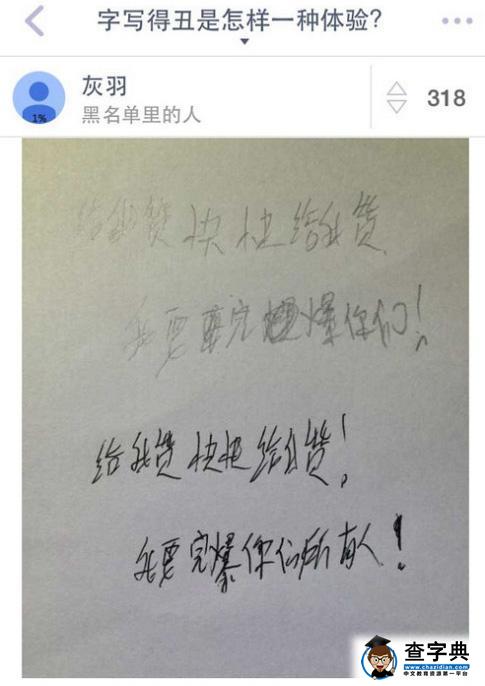 字写得丑是怎样一种体验?
灰羽
318
1%
黑名单里的人
给我赞快快给我赞
我要完爆你们!
给我赞快快给我赞!
我要完爆你们所有人!
查字典
www.chazidian.com
中文教育资源第一平台